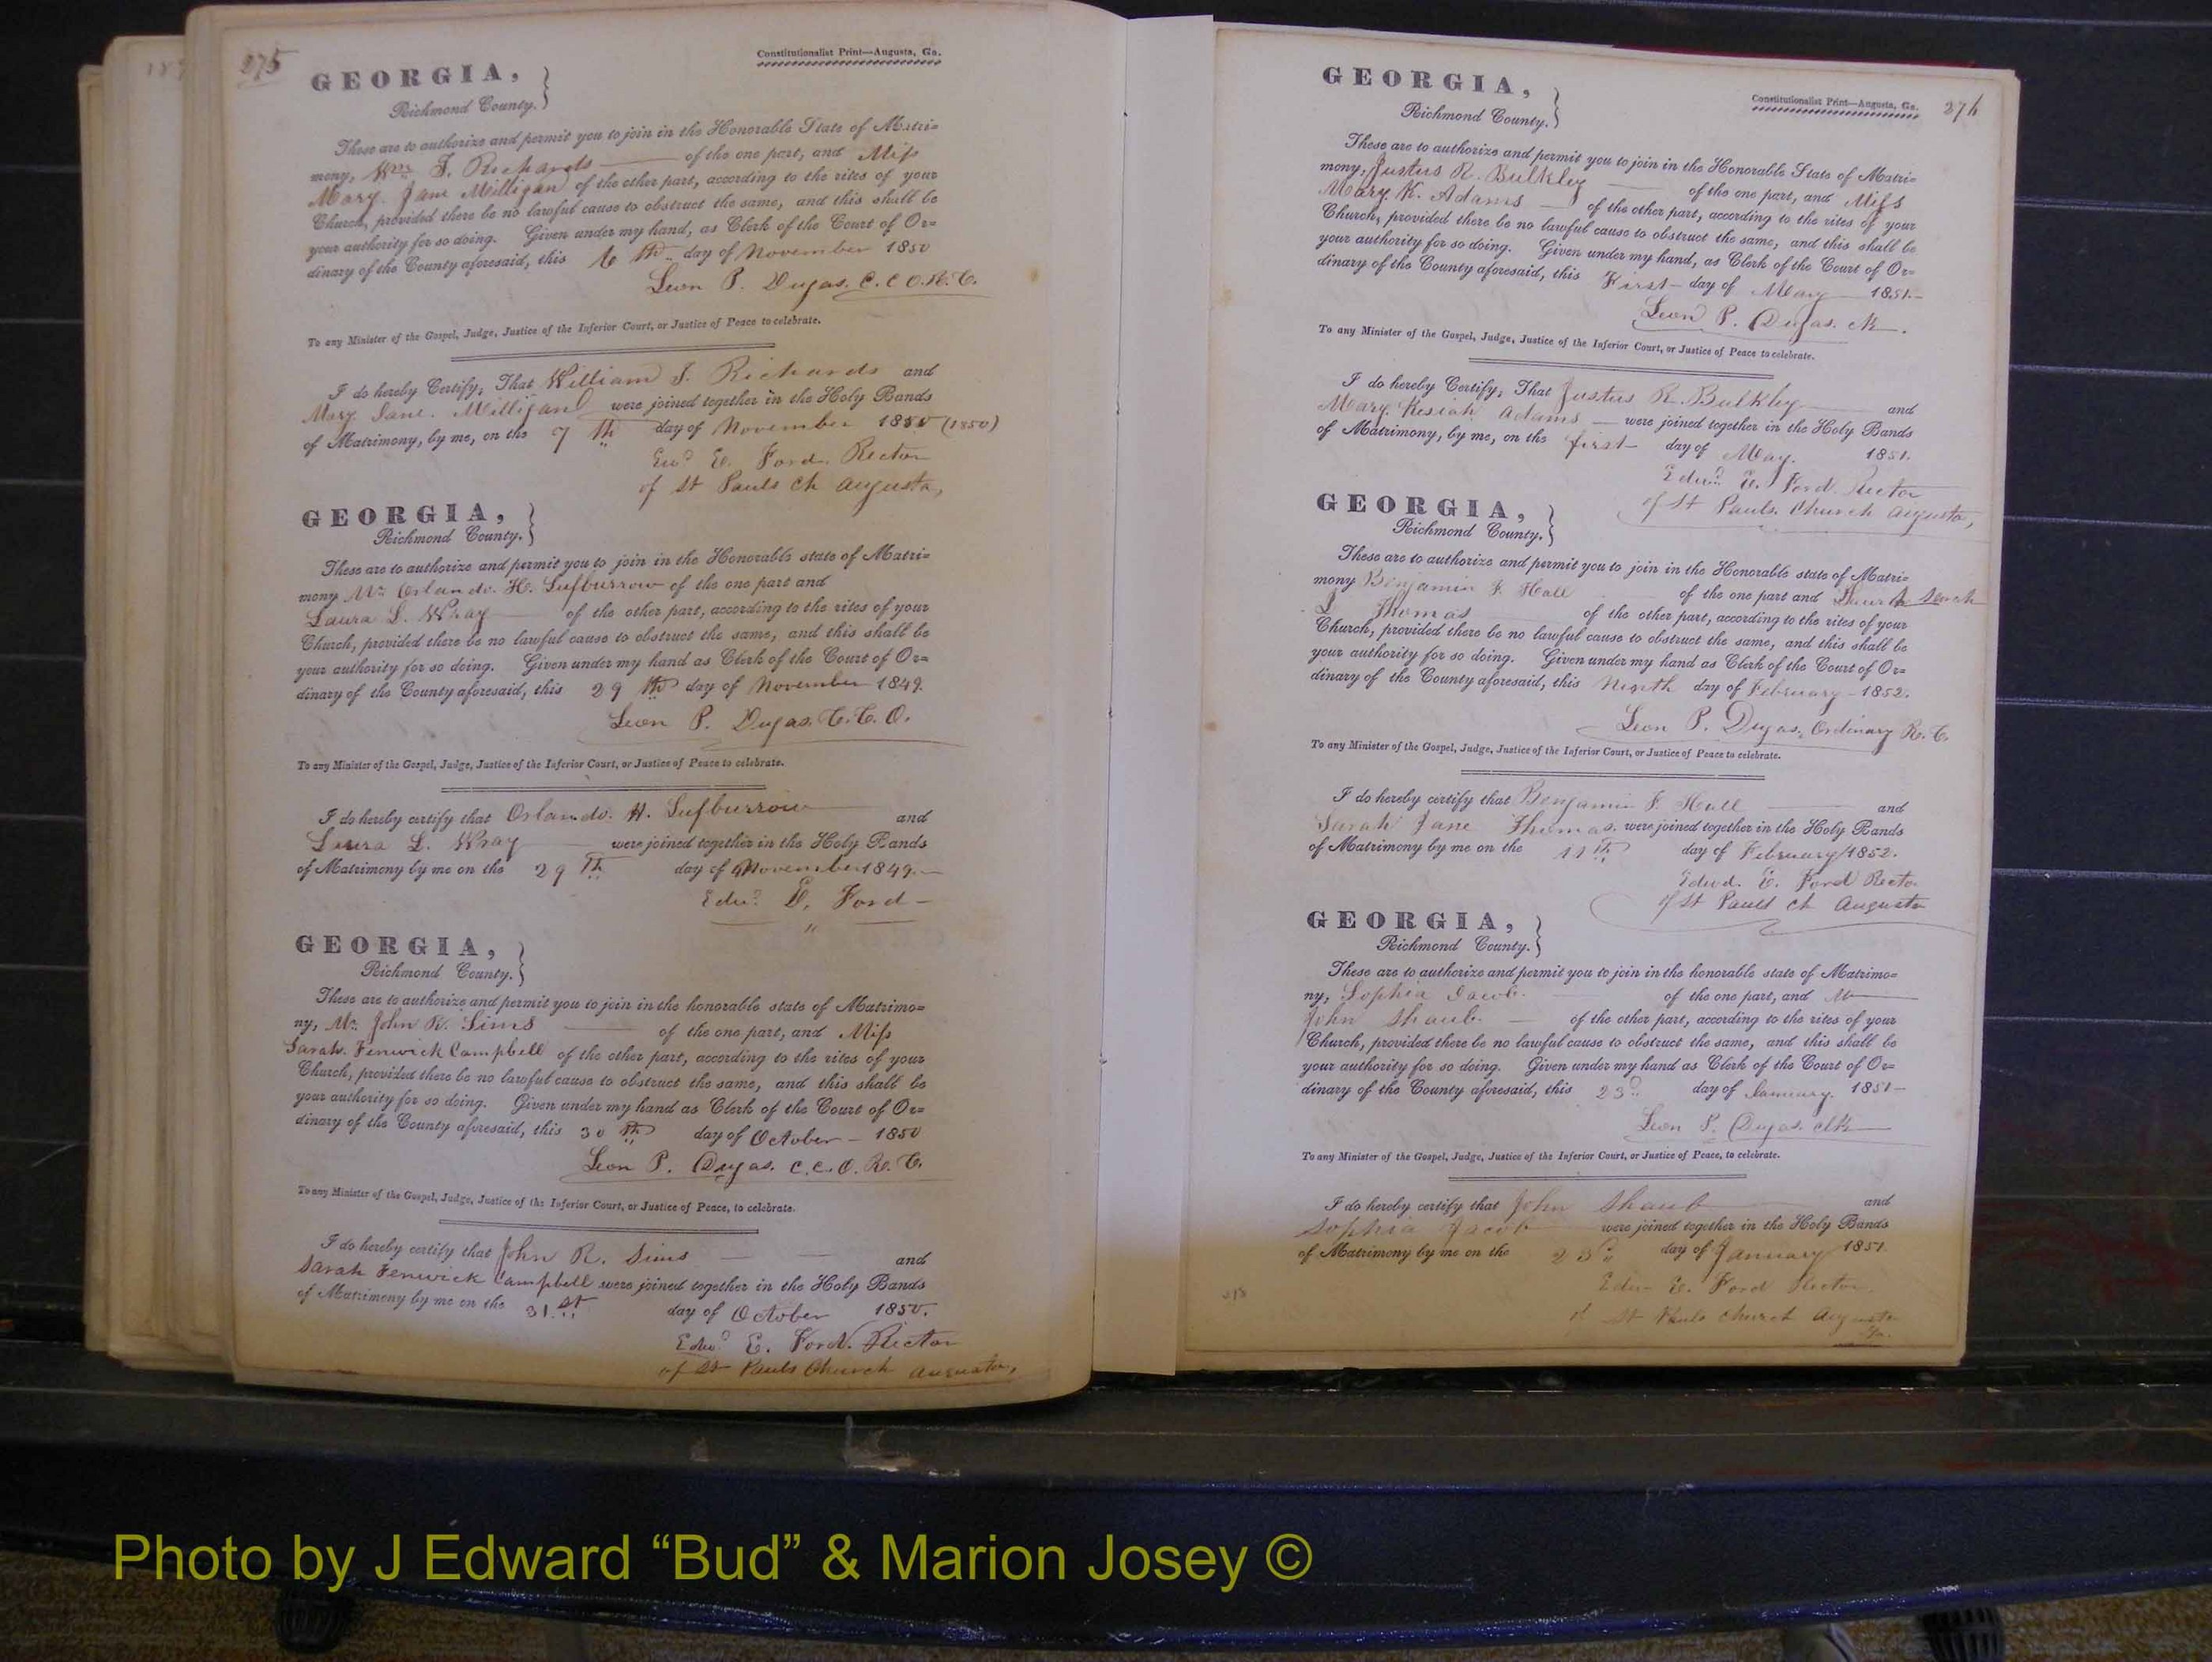 275
Constitutionalist Print—Augusta, Ga.
GEORGIA,
Richmond County.
These are to authorize and permit you to join in the Honorable State of Matri=
mony, Wm. J. Richards of the one part, and Miss
Mary Jane Milligan of the other part, according to the rites of your
Church, provided there be no lawful cause to obstruct the same, and this shall be
your authority for so doing. Given under my hand, as Clerk of the Court of Or=
dinary of the County aforesaid, this 6 th day of November 1850
Leon P. Dugas. C. C. O. R. C.
To any Minister of the Gospel, Judge, Justice of the Inferior Court, or Justice of Peace to celebrate.
I do hereby Certify, That William J. Richards and
Mary Jane Milligan were joined together in the Holy Bands
of Matrimony, by me, on the 7 th day of November 1850 (1850)
Ewd E. Ford. Rector
of St Pauls Ch Augusta,
GEORGIA,
Richmond County.
These are to authorize and permit you to join in the Honorable state of Matri=
mony Mr. Orlando. H. Lufburrow of the one part and
Laura L. Wray of the other part, according to the rites of your
Church, provided there be no lawful cause to obstruct the same, and this shall be
your authority for so doing. Given under my hand as Clerk of the Court of Or=
dinary of the County aforesaid, this 29 th day of November 1849.
Leon P. Dugas. C. C. O.
To any Minister of the Gospel, Judge, Justice of the Inferior Court, or Justice of Peace to celebrate.
I do hereby certify that Orlando. H. Lufburrow and
Laura L. Wray were joined together in the Holy Bands
of Matrimony by me on the 29 Th day of November 1849.
Edwd E. Ford
GEORGIA,
Richmond County.
These are to authorize and permit you to join in the honorable state of Matrimo=
ny, Mr. John R. Sims of the one part, and Miss
Sarah. Fenwick Campbell of the other part, according to the rites of your
Church, provided there be no lawful cause to obstruct the same, and this shall be
your authority for so doing. Given under my hand as Clerk of the Court of Or=
dinary of the County aforesaid, this 30 th day of October 1850
Leon P. Dugas. C. C. O. R. C.
To any Minister of the Gospel, Judge, Justice of the Inferior Court, or Justice of Peace, to celebrate.
I do hereby certify that John R. Sims and
Sarah Fenwick Campbell were joined together in the Holy Bands
of Matrimony by me on the 31. st day of October 1850.
Edwd E. Ford. Rector
of St Pauls Church Augusta,
276
Constitutionalist Print—Augusta, Ga.
GEORGIA,
Richmond County.
These are to authorize and permit you to join in the Honorable State of Matri=
mony, Justus R. Bulkley of the one part, and Miss
Mary K. Adams of the other part, according to the rites of your
Church, provided there be no lawful cause to obstruct the same, and this shall be
your authority for so doing. Given under my hand, as Clerk of the Court of Or=
dinary of the County aforesaid, this First day of May 1851.
Leon P. Dugas. Clk.
To any Minister of the Gospel, Judge, Justice of the Inferior Court, or Justice of Peace to celebrate.
I do hereby Certify, That Justus R. Bulkley and
Mary Kesiah Adams were joined together in the Holy Bands
of Matrimony, by me, on the first day of May. 1851.
Edwd. E. Ford. Rector
of St Pauls. Church Augusta,
GEORGIA,
Richmond County.
These are to authorize and permit you to join in the Honorable state of Matri=
mony Benjamin F. Hall of the one part and Sarah
J Thomas of the other part, according to the rites of your
Church, provided there be no lawful cause to obstruct the same, and this shall be
your authority for so doing. Given under my hand as Clerk of the Court of Or=
dinary of the County aforesaid, this Ninth day of February 1852.
Leon P. Dugas, Ordinary R. C.
To any Minister of the Gospel, Judge, Justice of the Inferior Court, or Justice of Peace to celebrate.
I do hereby certify that Benjamin F. Hall and
Sarah Jane Thomas. were joined together in the Holy Bands
of Matrimony by me on the 11 th day of February 1852.
Edwd. E. Ford Recto
of St Pauls Ch Augusta
GEORGIA,
Richmond County.
These are to authorize and permit you to join in the honorable state of Matrimo=
ny, Sophia Jacob. of the one part, and Mr
John Shaub. of the other part, according to the rites of your
Church, provided there be no lawful cause to obstruct the same, and this shall be
your authority for so doing. Given under my hand as Clerk of the Court of Or=
dinary of the County aforesaid, this 23 d day of January. 1851
Leon P. Dugas. Clk
To any Minister of the Gospel, Judge, Justice of the Inferior Court, or Justice of Peace, to celebrate.
I do hereby certify that John Shaub and
Sophia Jacob were joined together in the Holy Bands
of Matrimony by me on the 23 d day of January 1851
Edw E. Ford Rector
of St Pauls Church Augusta
Ga.
Photo by J Edward “Bud” & Marion Josey ©